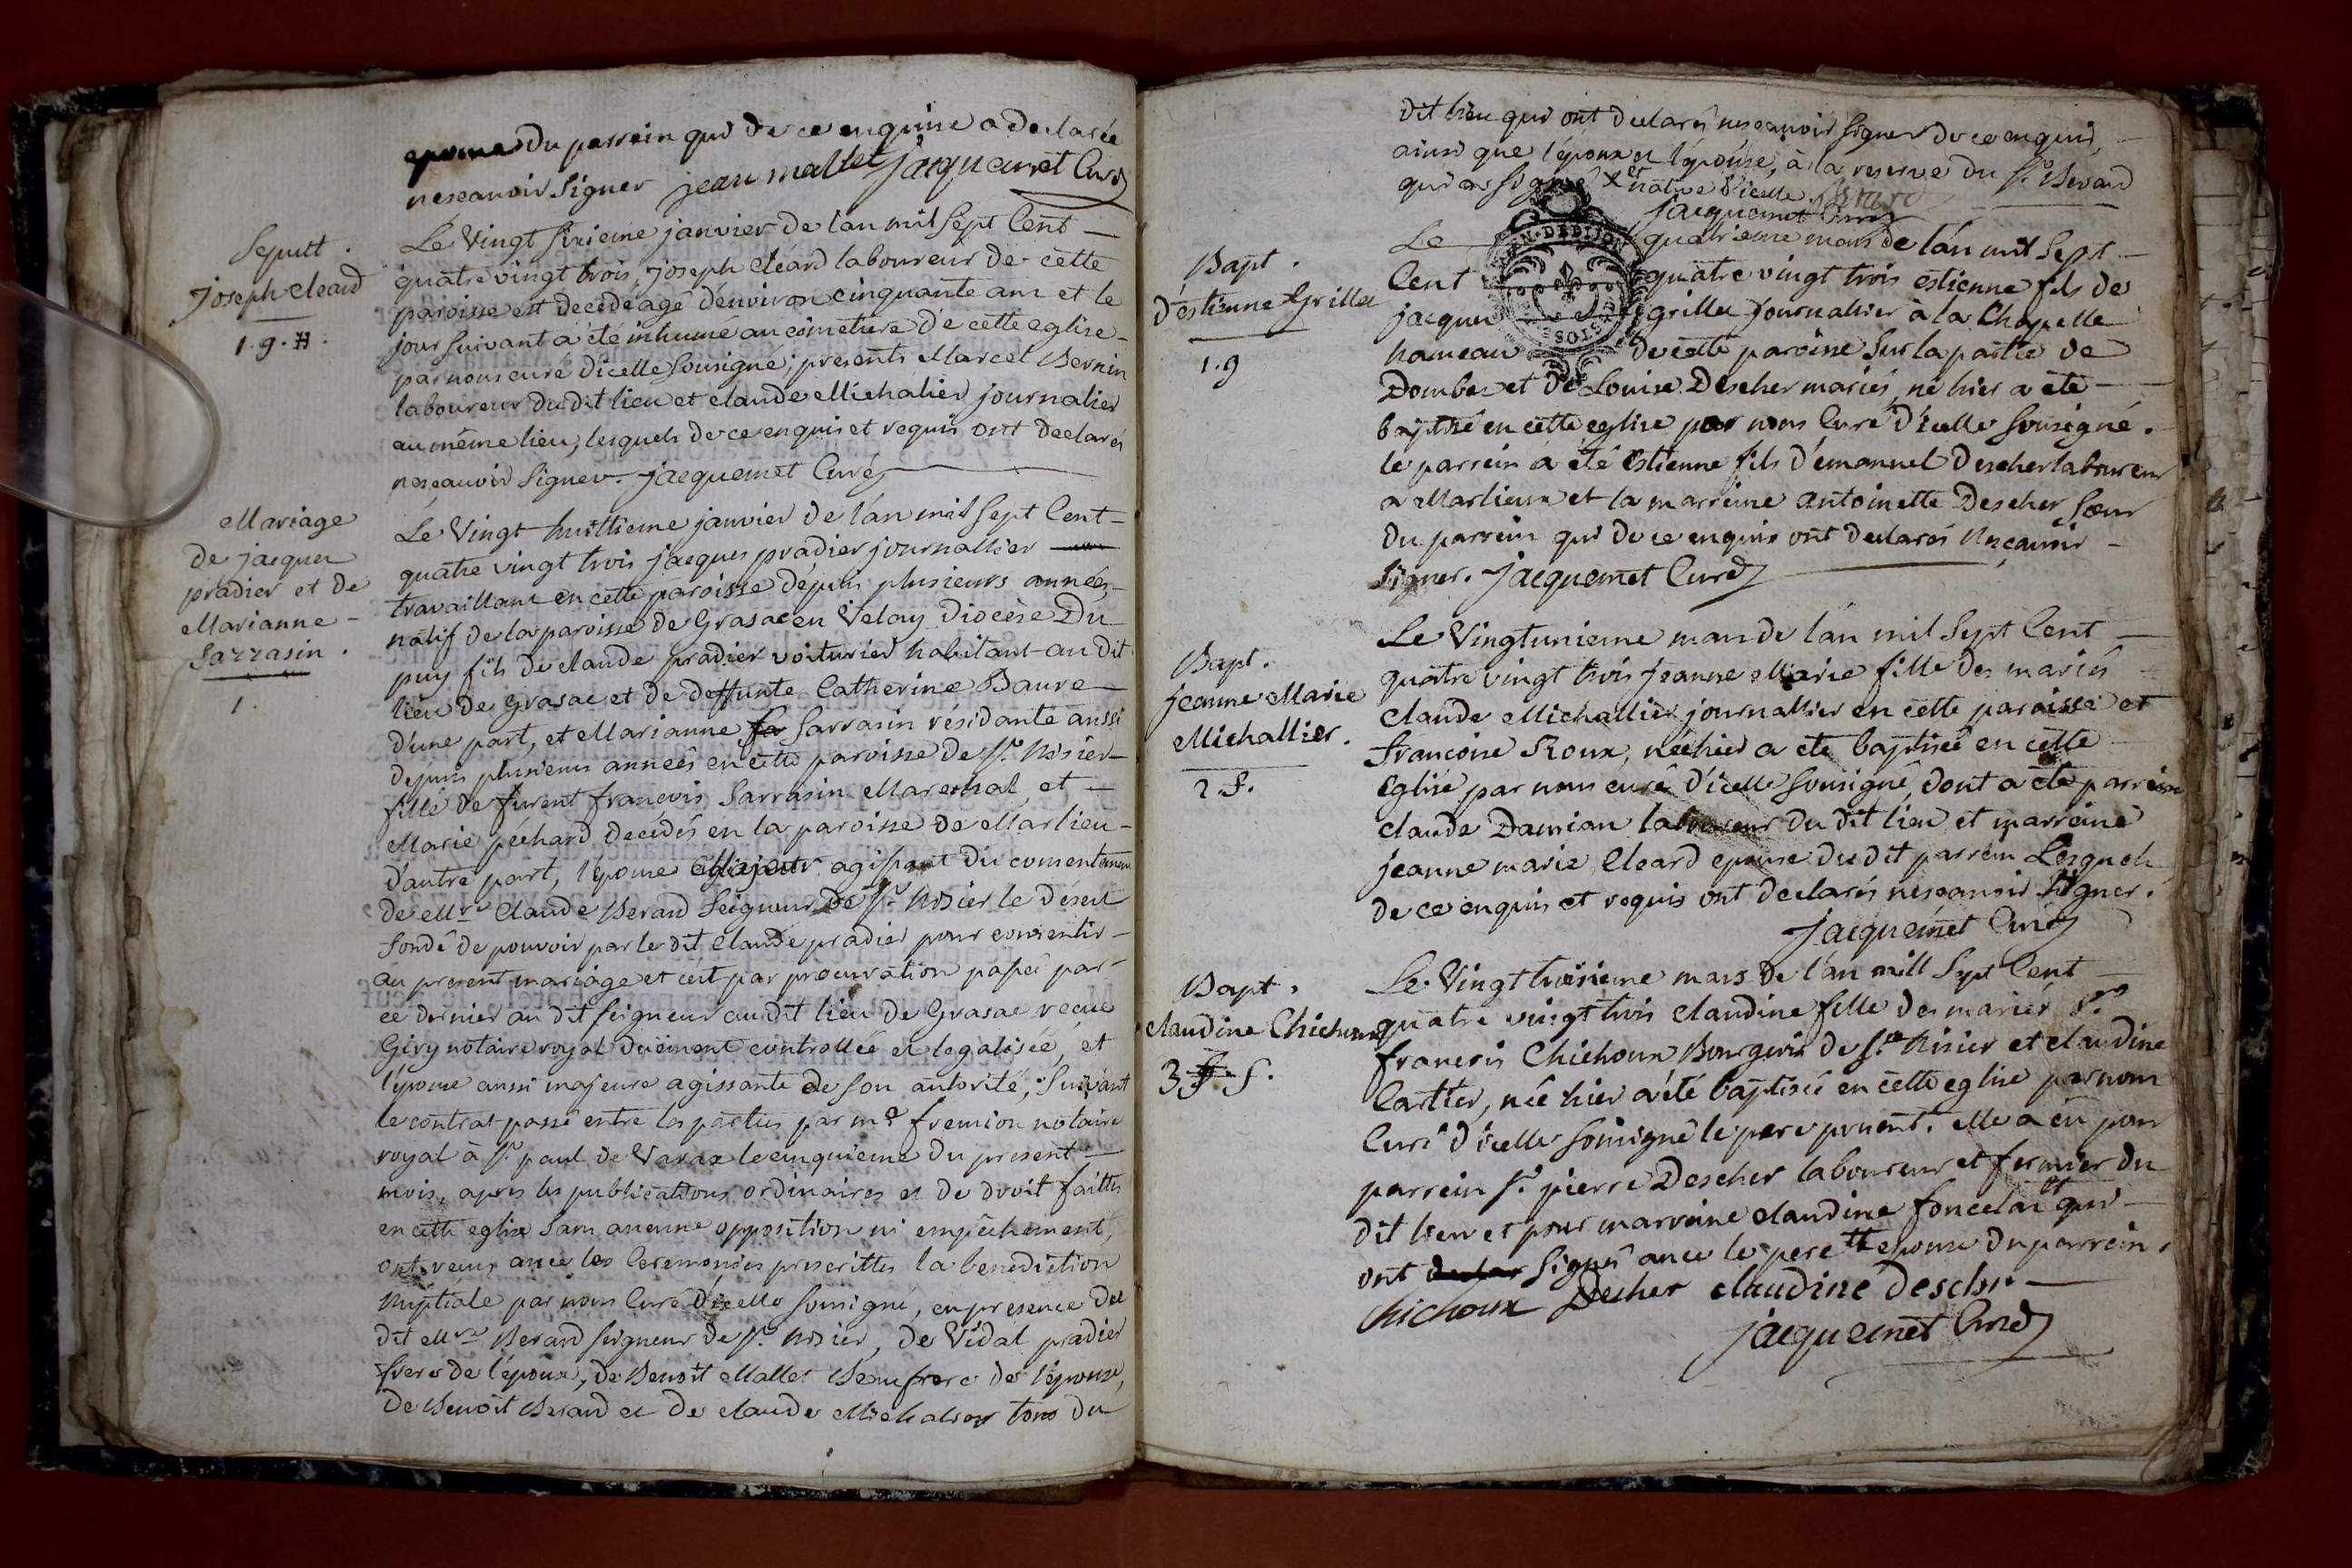 epouse du parrein qui de ce enquise a declarée
nescavoir signer jean mallet jacquemet Curé
Sepult.
joseph cleard
1. g. H.
Le Vingt sixieme janvier de l'an mil Sept Cent
quatre vingt trois, joseph cléard laboureur de cette
paroisse est decedé agé d'environ cinquante ans et le
jour suivant a été inhumé au cimetiere de cette eglise
par nous curé d'icelle sousigné; presents Marcel Bernin
laboureur du dit lieu et claude Michalier journalier
au même lieu, lesquels de ce enquis et requis ont declarés
nescavoir signer. jacquemet Curé
Mariage
de jacques
pradier et de
Marianne
Sarrasin.
1.
Le Vingt huittieme janvier de l'an mil Sept Cent
quatre vingt trois jacques pradier journallier
travaillant en cette paroisse dépuis plusieurs années,
natif de la paroisse de Grasac en Velay Diocèse Du
puy fils de claude pradier voiturier habitant au dit
lieu de Grasac et de deffunte Catherine Baure
d'une part, et Marianne sa Sarrasin résidante aussi
dépuis plusieurs années en cette paroisse de St. Nisier
fille de furent francois Sarrasin Marechal et
Marie péchard decédés en la paroisse de Marlieu
d'autre part, l'epoux Majeur agissant du consentement
de Mre Claude Berard Seigneur de St. Nisier le désert
fondé de pouvoir par le dit Claude pradier pour consentir
au present mariage et cest par procuration passée par
ce dernier au dit seigneur au dit lieu de Grasac recue
Giry notaire royal duëment controllée et legalisée, et
l'épouse aussi majeure agissante de son autorité, suivant
le contrat passé entre les parties par me fremion notaire
royal à St. paul de Varax le cinquieme du present
mois, après les publications ordinaires et de droit faittes
en cette eglise sans aucune opposition ni empêchement,
ont recus avec les Ceremonies prescrittes la benediction
Nuptiale par nous Curé d'icelle sousigné, en presence du
dit Mre Berard seigneur de St. Nisier, de Vidal pradier
frere de l'époux, de Benoît Mallet Beaufrere de l'épouse,
de Benoît Berard et de claude Michalier tous du
dit lieu qui ont declarés nescavoir signer de ce enquis,
ainsi que l'époux et l'épouse, à la reserve du Sr. Berard
qui a signé et native d'icelle. Berard
jacquemet Curé
GEN. DE DIJON
SOLS
Bapt.
d'estienne Grillet
1. g
Le quatrieme mars de l'an mil Sept
Cent quatre vingt trois estienne fils de
jacques grillet journalier à la Chapelle
hameau de cette paroisse sur la partie de
Dombes et de Louise Descher mariés, né hier a été
baptisé en cette eglise par nous Curé d'icelle sousigné.
le parrein a été estienne fils d'emanuel Descher laboureur
a Marlieux et la marreine antoinette Descher soeur
du parrein qui de ce enquis ont declarés Nscavoir
signer. jacquemet Curé
Bapt.
jeanne Marie
Michallier.
2 f.
Le Vingtunieme mars de l'an mil Sept Cent
quatre vingt trois jeanne Marie fille des mariés
claude Michallier journallier en cette paroisse et
francoise Roux, née hier a été baptisée en cette
Eglise par nous curé d'icelle sousigné, dont a été parrein
claude Damian laboureur du dit lieu et marreine
jeanne marie Cleard epouse du dit parrein Lesquels
de ce enquis et requis ont declarés nescavoir Signer.
jacquemet Curé
Bapt.
claudine Chichoux
3 f. f.
Le Vingt troisieme mars de l'an mill Sept Cent
quatre vingt trois claudine fille des mariés Sr.
francois Chichoux Bourgeois de St. Nisier et claudine
Cartier, née hier a été baptisée en cette eglise par nous
Curé d'icelle sousigné le pere present. elle a eu pour
parrein Sr. pierre Descher laboureur et fermier du
dit lieu et pour marreine claudine foncelat qui
ont signés avec le pere epouse du parrein.
Chichoux Decher claudine deschr
jacquemet Curé